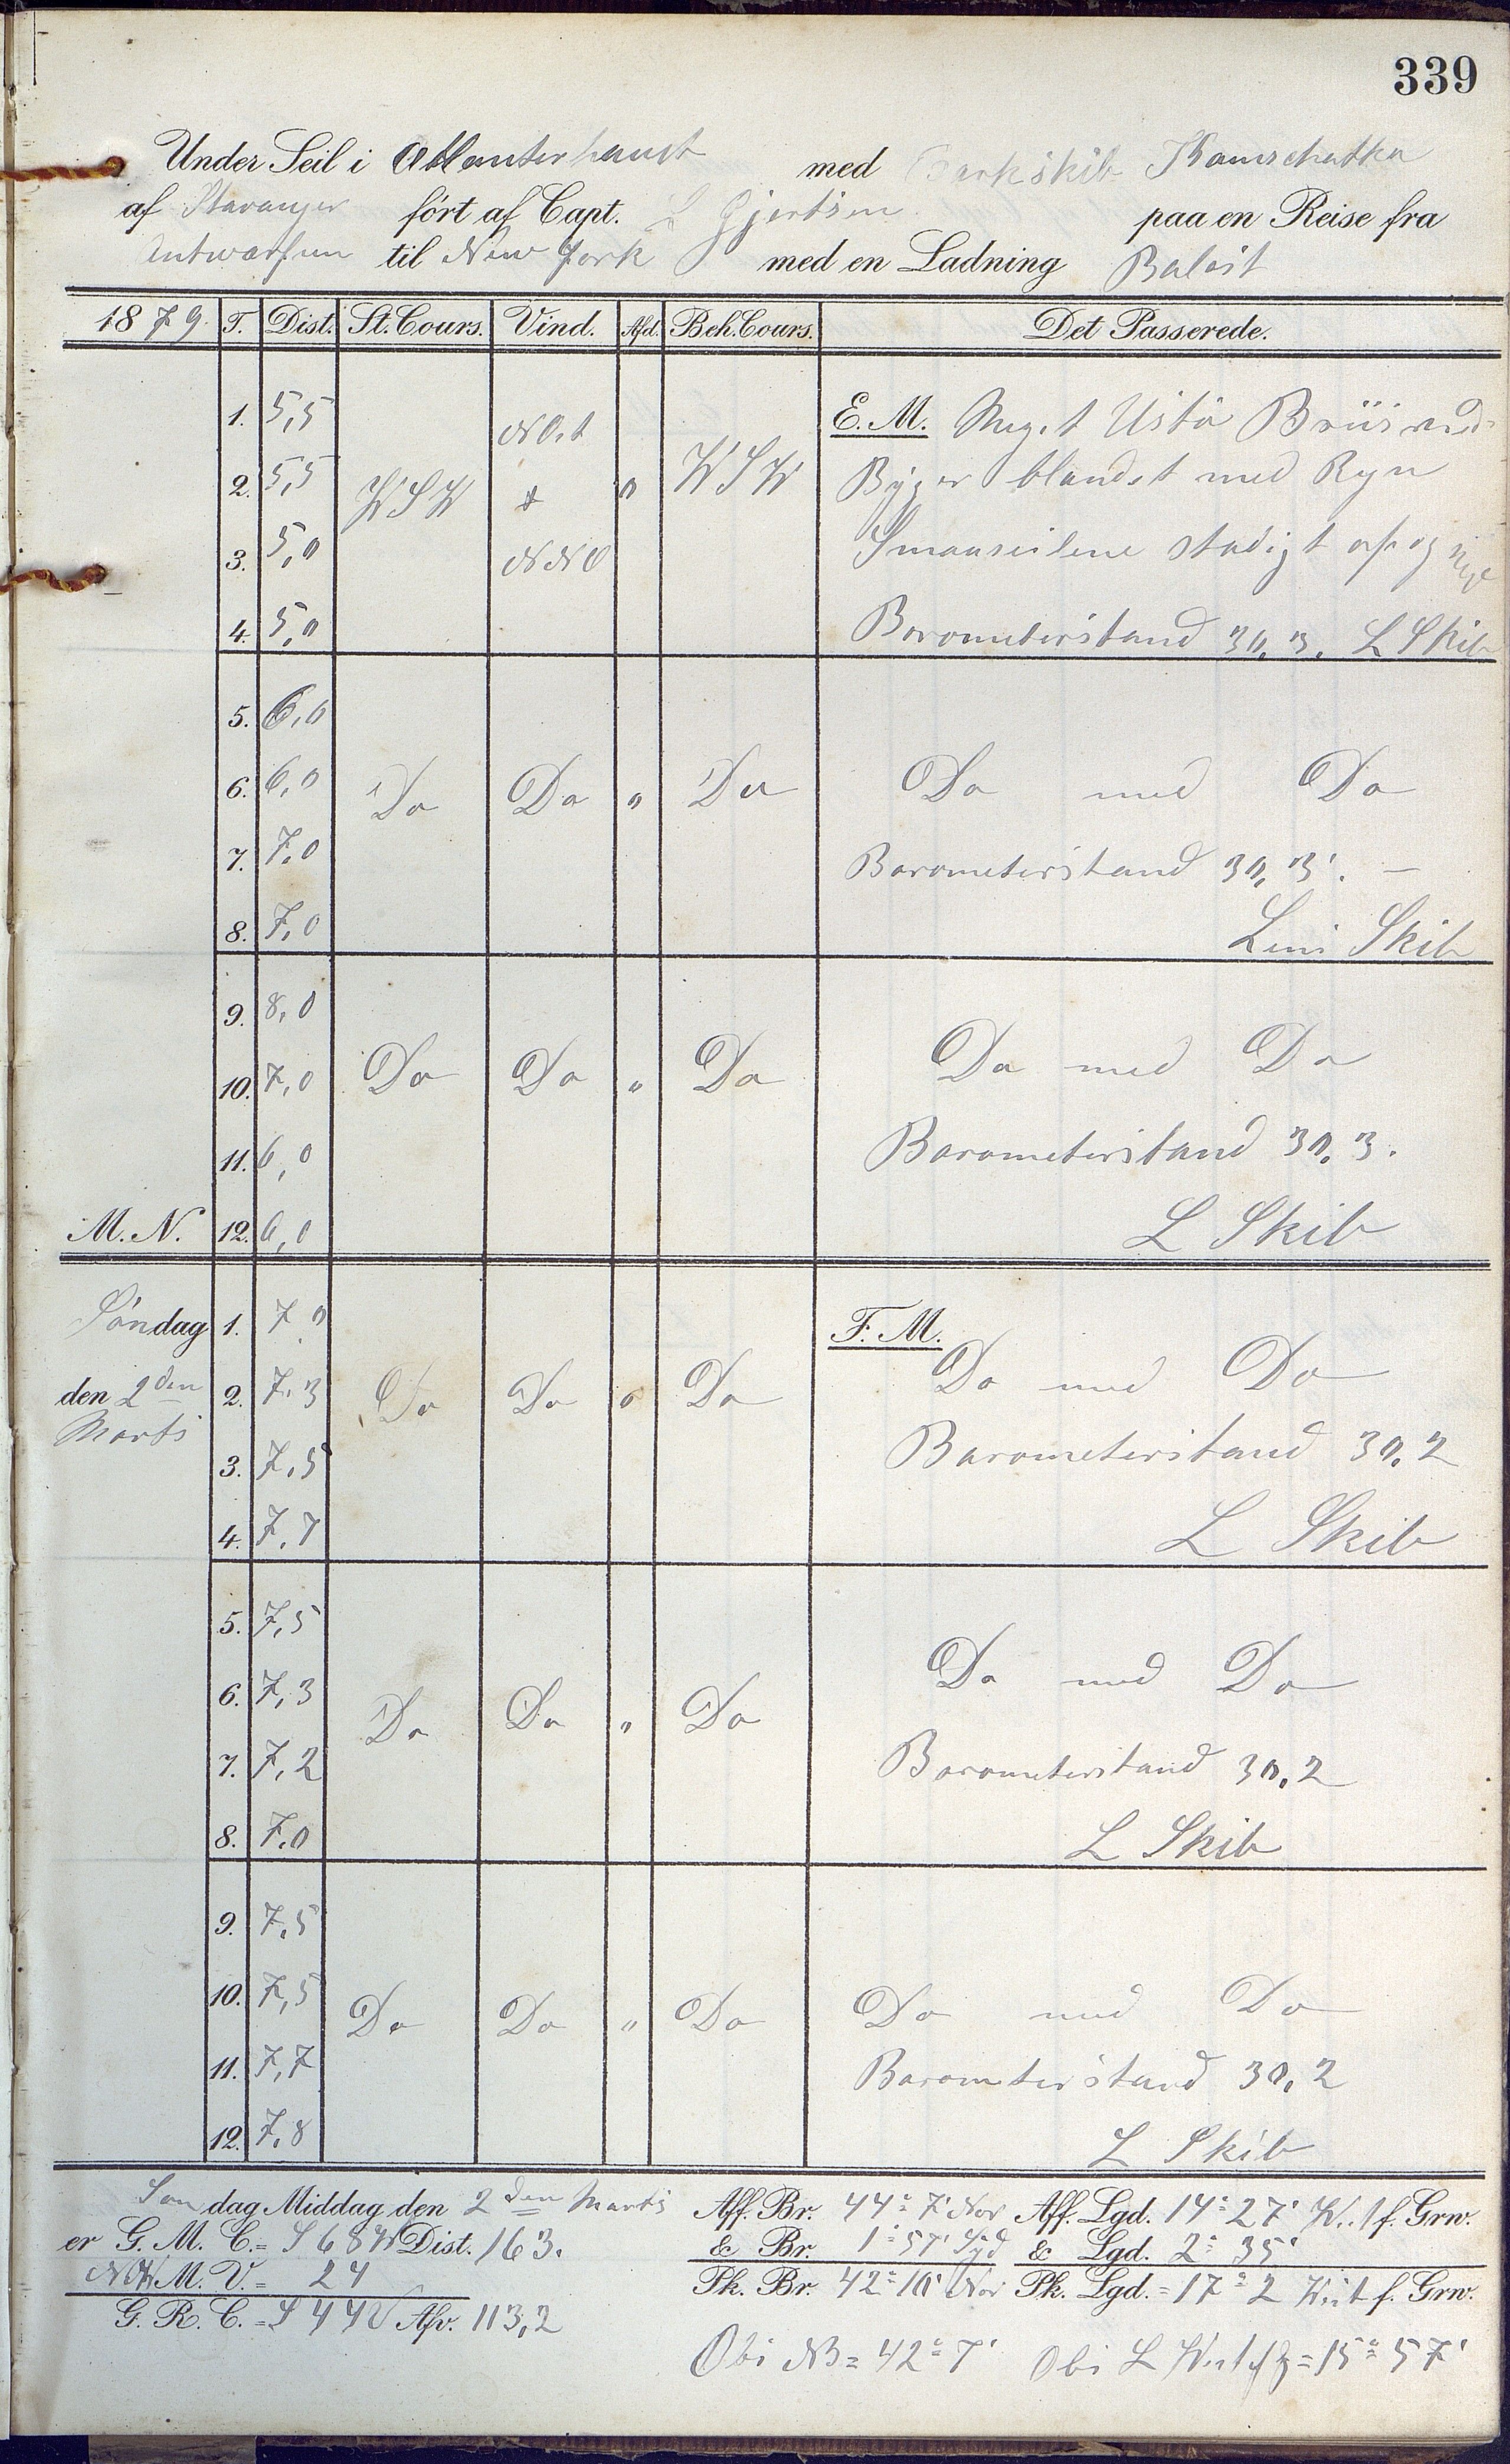 339
Under Seil i Atlanterhavet med Barkskib Kamschatka
af Stavanger ført af Capt. L Gjertsen paa en Reise fra
Antwerpen til New York med en Ladning Balast
1879. T. Dist. St. Cours. Vind. Afd. Beh. Cours. Det Passerede.
1. 5,5 NOst E. M. Meget Ustø Briis med
2. 5,5 WSW " WSW Byger blandet med Regn
3. 5,0 NNO Smaaseilene stadigt op og
4. 5,0 Barometerstand 30,3. L Skib
5. 6,0
6. 6,0 Do Do " Do Do med Do
7. 7,0 Barometerstand 30,3. –
8. 7,0 Lens Skib
9. 8,0
10. 7,0 Do Do " Do Do med Do
11. 6,0 Barometerstand 30,3.
M. N. 12. 6,0 L Skib
Søndag 1. 7,0 F. M.
den 2den 2. 7,3 Do Do " Do Do med Do
Marts
3. 7,5 Barometerstand 30,2
4. 7,7 L Skib
5. 7,5
6. 7,3 Do Do " Do Do med Do
7. 7,2 Barometerstand 30,2
8. 7,0 L Skib
9. 7,5
10. 7,5 Do Do " Do Do med Do
11. 7,7 Barometerstand 30,2
12. 7,8 L Skib
Søndag Middag den 2den Marts Aff. Br. 44° 7' Nor Aff. Lgd. 14° 27' West f. Grw.
er G. M. C. = S 68 W Dist. 163. & Br. 1° 57' Syd & Lgd. 2° 35'
M. V. = 24 Pk. Br. 42° 10' Nor Pk. Lgd. = 17° 2 West f. Grw.
G. R. C. = S 44 V Afv. 113,2
Obs NB = 42° 7' Obs L West f G = 15° 57'